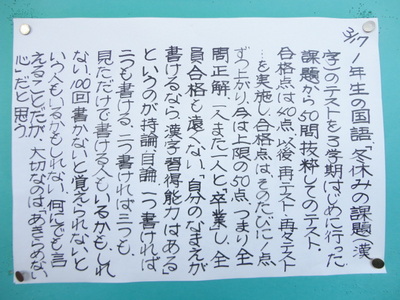 3/7
1年生の国語、「冬休みの課題(漢
字)」のテストを3学期はじめに行った。
課題から50問抜粋してのテスト、
合格点は40点。以後、再テスト・再々テスト
…を実施し、合格点は、そのたびに1点
ずつ上がり、今は上限の50点、つまり全
問正解。一人また一人と「卒業」し、全
員合格も遠くない。「自分のなまえが
書けるなら、漢字習得能力はある」
というのが持論、自論。一つ書ければ、
二つも書ける。二つ書ければ三つも。
見ただけで書ける人もいるかもしれ
ない。100回書かないと覚えられないと
いう人もいるかもしれない。何にでも言
えることだが、大切なのは「あきらめない
心」だと思う。